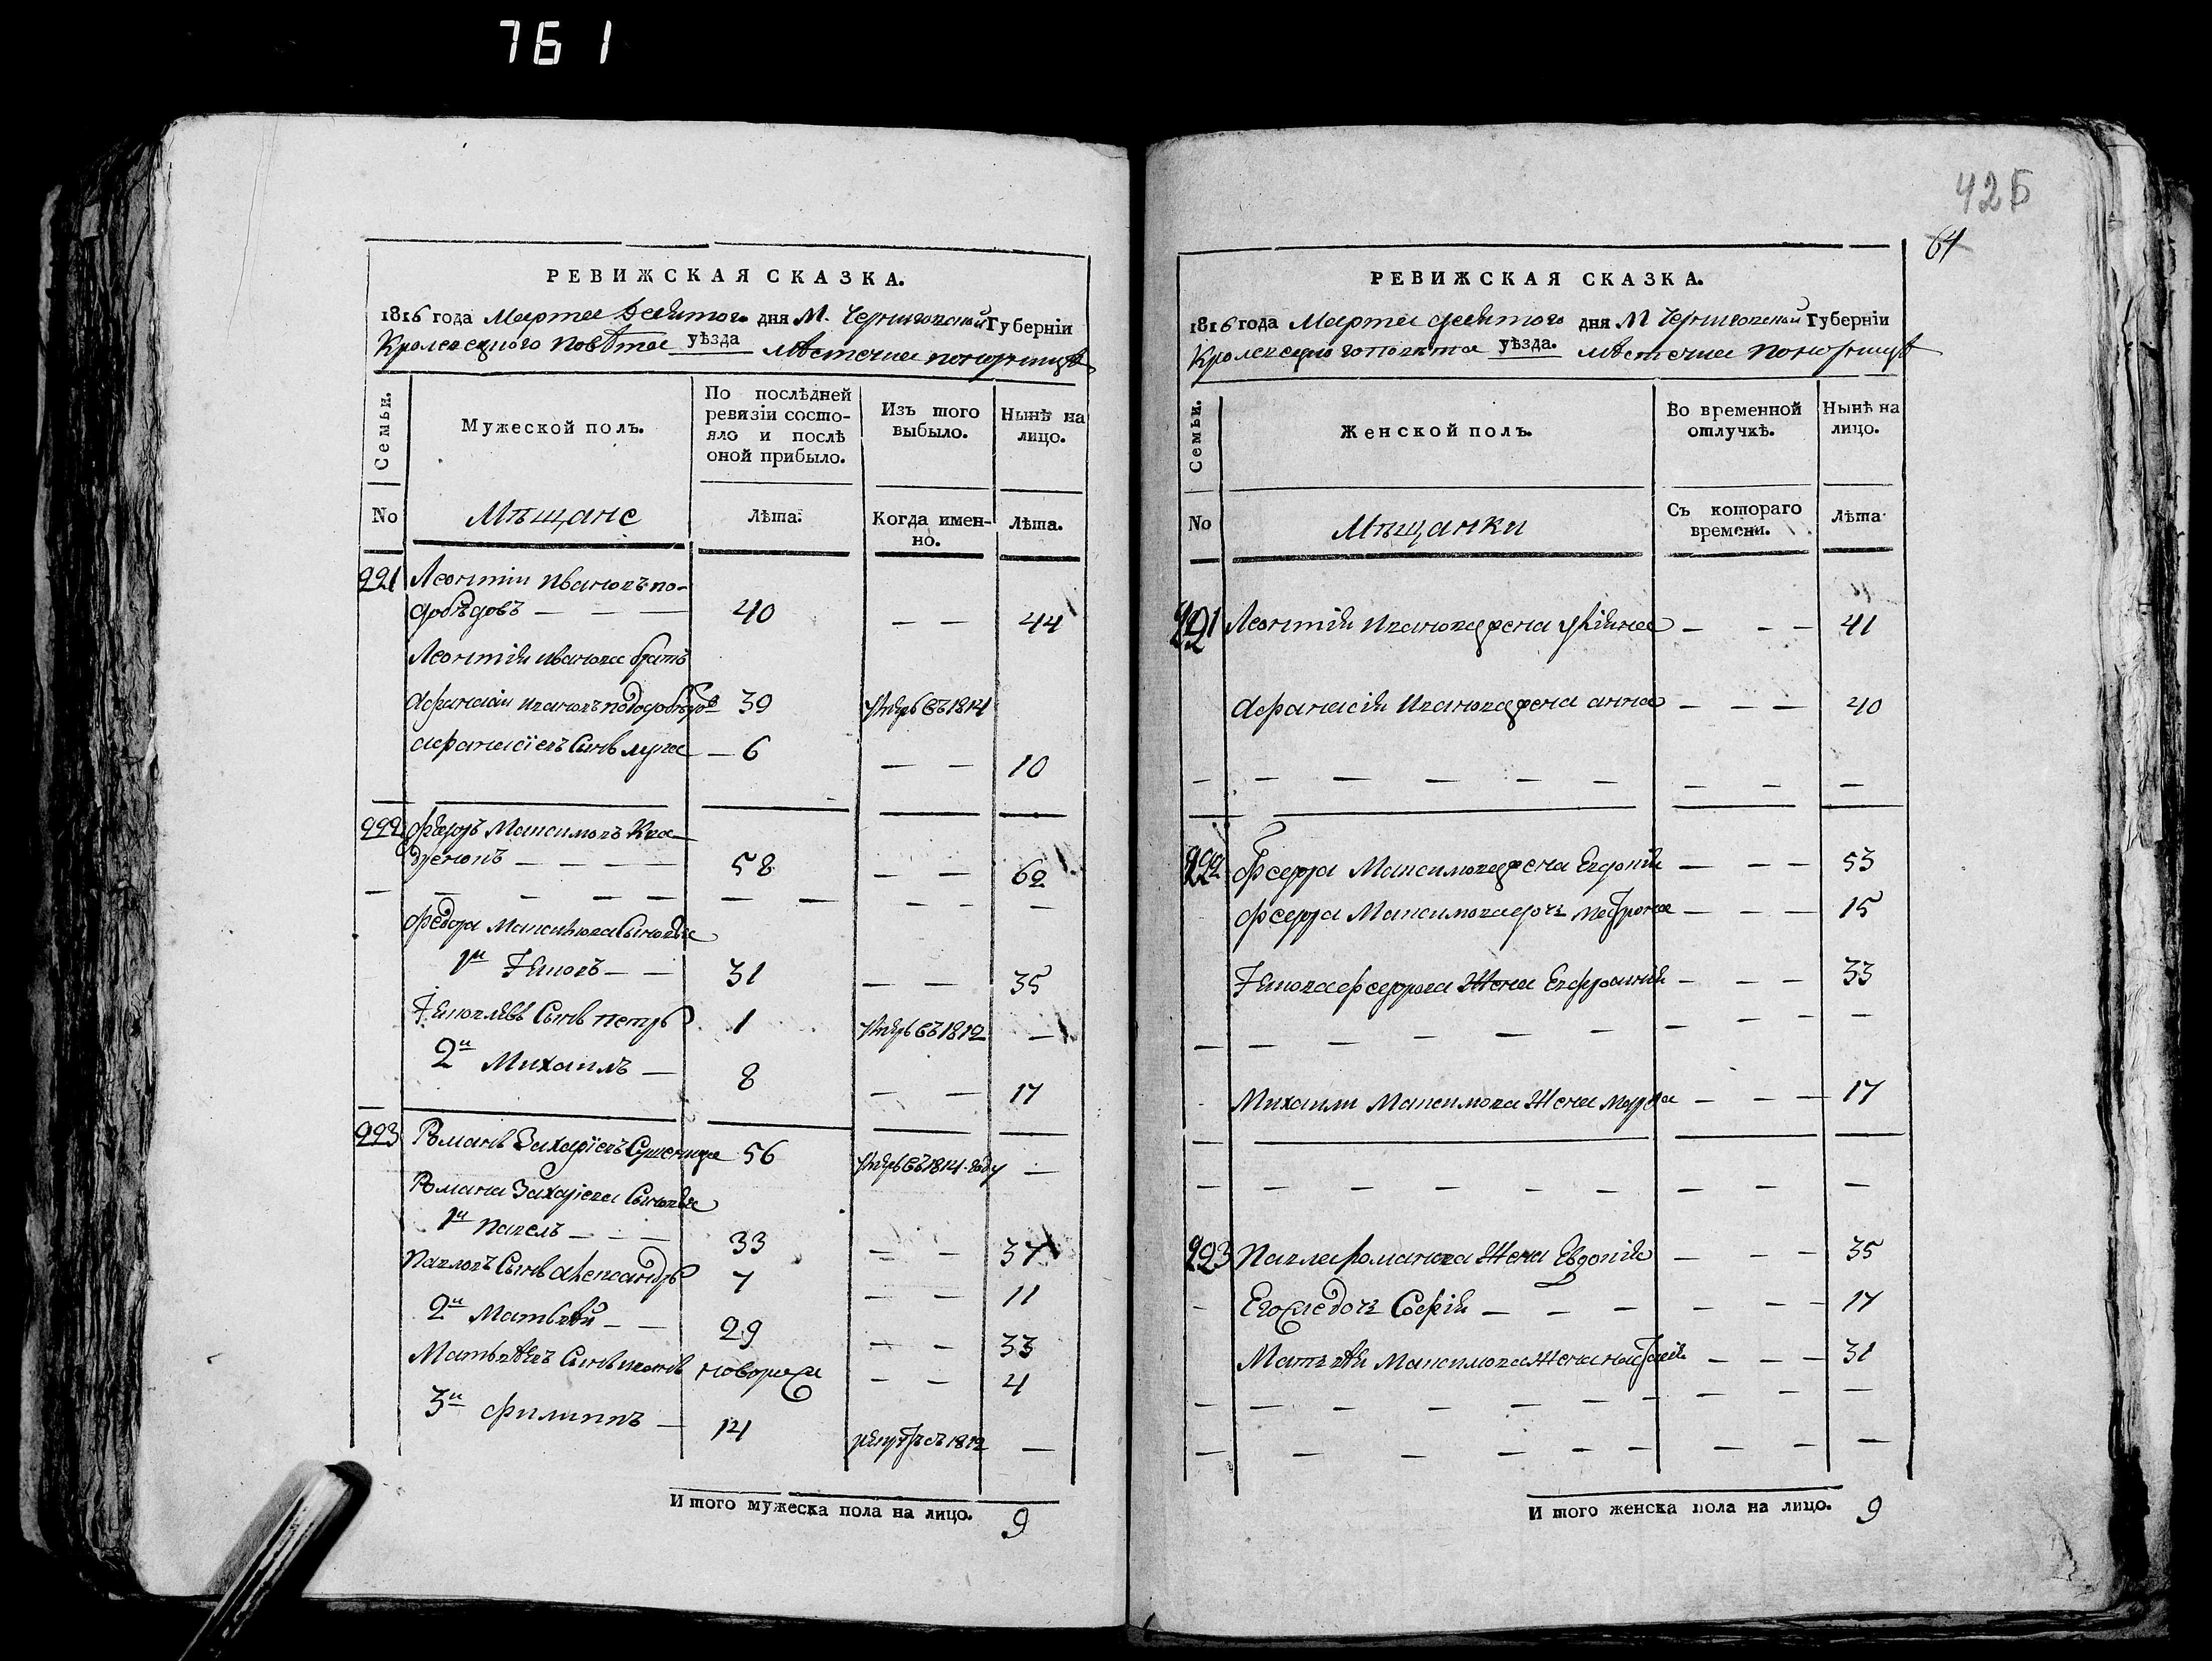 761
РЕВИЖСКАЯ СКАЗКА.
1816 года Марта Девятого дня М. Черниговской Губерніи
Кролевецкого Повѣта уѣзда мѣстечка понорницѣ
Семьи.
Мужеской полъ.
По послѣдней ревизіи состояло и послѣ оной прибыло.
Изъ того выбыло.
Нынѣ на лицо.
No
Мѣщане
Лѣта.
Когда именно.
Лѣта.
221 Леонтій Ивановъ по-
40 — — 44
Леонтія Иванова братъ
Афанасій Ивановъ 39 умеръ въ 1814
Афанасіевъ Сынъ лука — 6 — — 10
222 Федоръ Максимовъ
— — — — 58 — — 62
— — — — — — — — — —
Федора Максимова Сыновья
1й — — 31 — — 35
Сынъ петръ 1 умеръ въ 1812 —
2й Михаилъ — 8 — — 17
223 Романъ Захаріевъ 56 умеръ въ 1814 году —
Романа Захаріева Сыновья
1й павелъ — — — 33 — — 37
Павловъ Сынъ александръ 7 — — 11
2й Матвѣй — — 29 — — 33
Матвѣевъ Сынъ новорож — — 4
3й филиппъ — 14 1812 —
И того мужеска пола на лицо. 9
425
64
РЕВИЖСКАЯ СКАЗКА.
1816 года Марта девятого дня М Черниговской Губерніи
Кролевецкого повѣта уѣзда. мѣстечка понорницѣ
Семьи.
Женской полъ.
Во временной отлучкѣ.
Нынѣ на лицо.
No
Мѣщанки
Съ котораго времени.
Лѣта
221 Леонтія Иванова жена — — — 41
Афанасія Иванова жена анна — — — 40
— — — — — — — — — —
222 Федора Максимова жена Евдокія — — — 53
Федора Максимова дочь — — — 15
Федорова Жена — — — 33
— — — — — — — — — —
Михаили Максимова Жена — — — 17
— — — — — — — — —
223 Павла романова Жена Евдокія — — — 35
Его дочь Софія — — — — — — 17
Матвѣя Максимова Жена — — — 31
— — — — — — — — — —
— — — — — — — — —
И того женска пола на лицо. 9